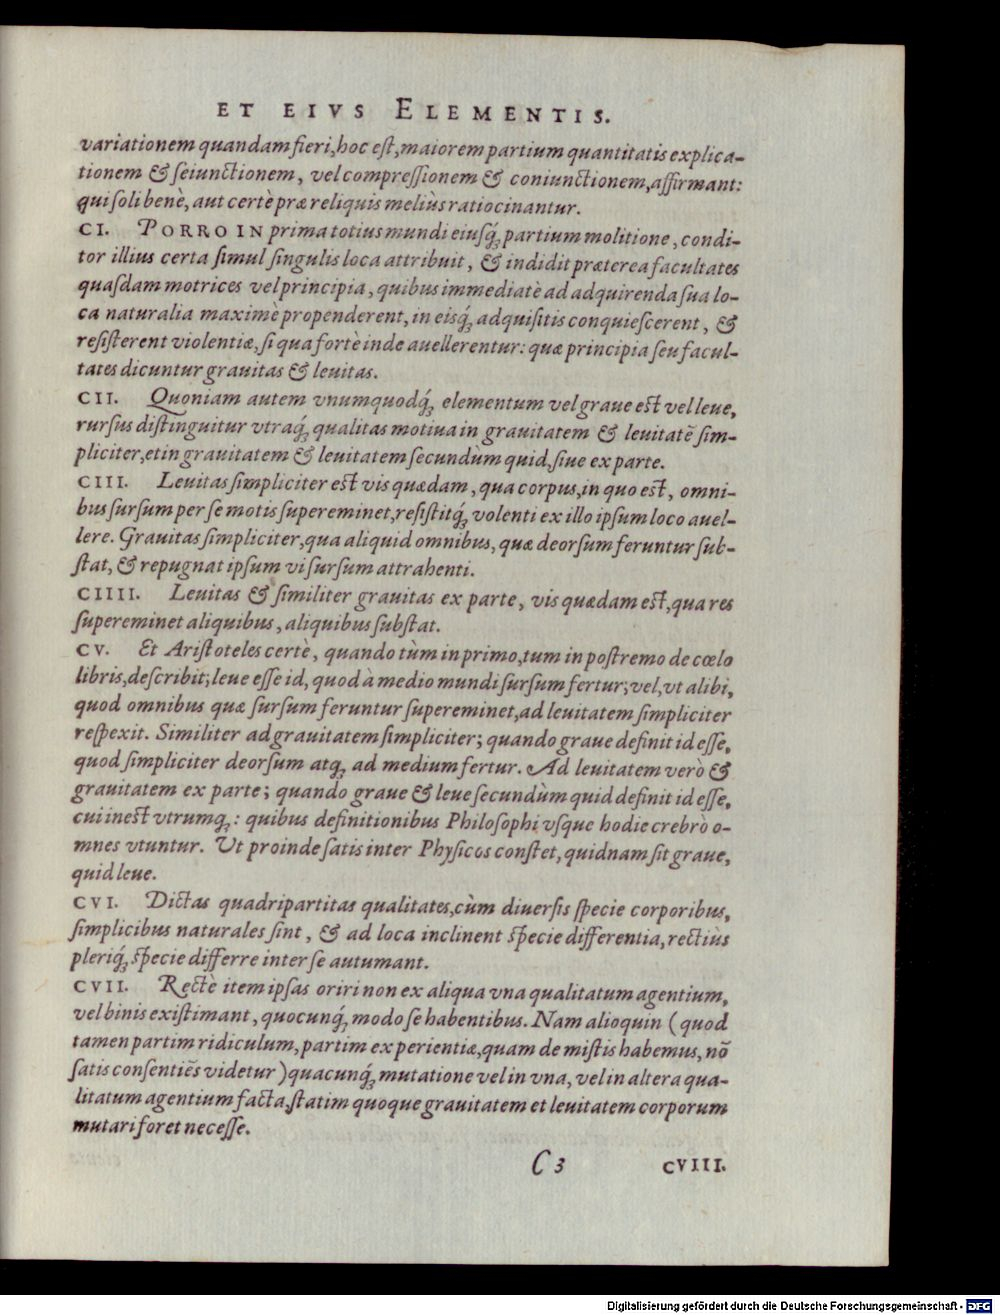 ET EIVS ELEMENTIS.
variationem quandam fieri, hoc est, maiorem partium quantitatis explica-
tionem & seiunctionem, vel compreſſionem & coniunctionem, affirmant:
qui soli benè, aut certè præ reliquis meliùs ratiocinantur.
CI. PORRO IN prima totius mundi eiusq́; partium molitione, condi-
tor illius certa ſimul ſingulis loca attribuit, & indidit præterea facultates
quaſdam motrices vel principia, quibus immediatè ad adquirenda ſua lo-
ca naturalia maximè propenderent, in eisq́; adquiſitis conquieſcerent, &
reſiſterent violentiæ, ſi qua fortè inde auellerentur: quæ principia ſeu facul-
tates dicuntur grauitas & leuitas.
CII. Quoniam autem vnumquodq́; elementum vel graue eſt vel leue,
rurſus diſtinguitur vtraq́; qualitas motiua in grauitatem & leuitatē ſim-
pliciter, et in grauitatem & leuitatem ſecundùm quid, ſiue ex parte.
CIII. Leuitas ſimpliciter eſt vis quædam, qua corpus, in quo eſt, omni-
bus ſurſum per ſe motis ſupereminet, reſiſtitq́; volenti ex illo ipſum loco auel-
lere. Grauitas ſimpliciter, qua aliquid omnibus, quæ deorſum feruntur ſub-
ſtat, & repugnat ipſum vi ſurſum attrahenti.
CIIII. Leuitas & ſimiliter grauitas ex parte, vis quædam eſt, qua res
ſupereminet aliquibus, aliquibus ſubſtat.
CV. Et Ariſtoteles certè, quando tùm in primo, tum in poſtremo de cœlo
libris, deſcribit; leue eſſe id, quod à medio mundi ſurſum fertur; vel, vt alibi,
quod omnibus quæ ſurſum feruntur ſupereminet, ad leuitatem ſimpliciter
reſpexit. Similiter ad grauitatem ſimpliciter; quando graue definit id eſſe,
quod ſimpliciter deorſum atq; ad medium fertur. Ad leuitatem verò &
grauitatem ex parte; quando graue & leue ſecundùm quid definit id eſſe,
cui ineſt vtrumq;: quibus definitionibus Philoſophi vſque hodie crebrò o-
mnes vtuntur. Ut proinde ſatis inter Phyſicos conſtet, quidnam ſit graue,
quid leue.
CVI. Dictas quadripartitas qualitates, cùm diuerſis ſpecie corporibus,
ſimplicibus naturales ſint, & ad loca inclinent ſpecie differentia, rectiùs
pleriq́; ſpecie differre inter ſe autumant.
CVII. Rectè item ipſas oriri non ex aliqua vna qualitatum agentium,
vel binis exiſtimant, quocunq́; modo ſe habentibus. Nam alioquin (quod
tamen partim ridiculum, partim experientiæ, quam de miſtis habemus, nō
ſatis conſentiēs videtur) quacunq́; mutatione vel in vna, vel in altera qua-
litatum agentium facta, ſtatim quoque grauitatem et leuitatem corporum
mutari foret neceſſe.
C 3 CVIII.
Digitalisierung gefördert durch die Deutsche Forschungsgemeinschaft - DFG